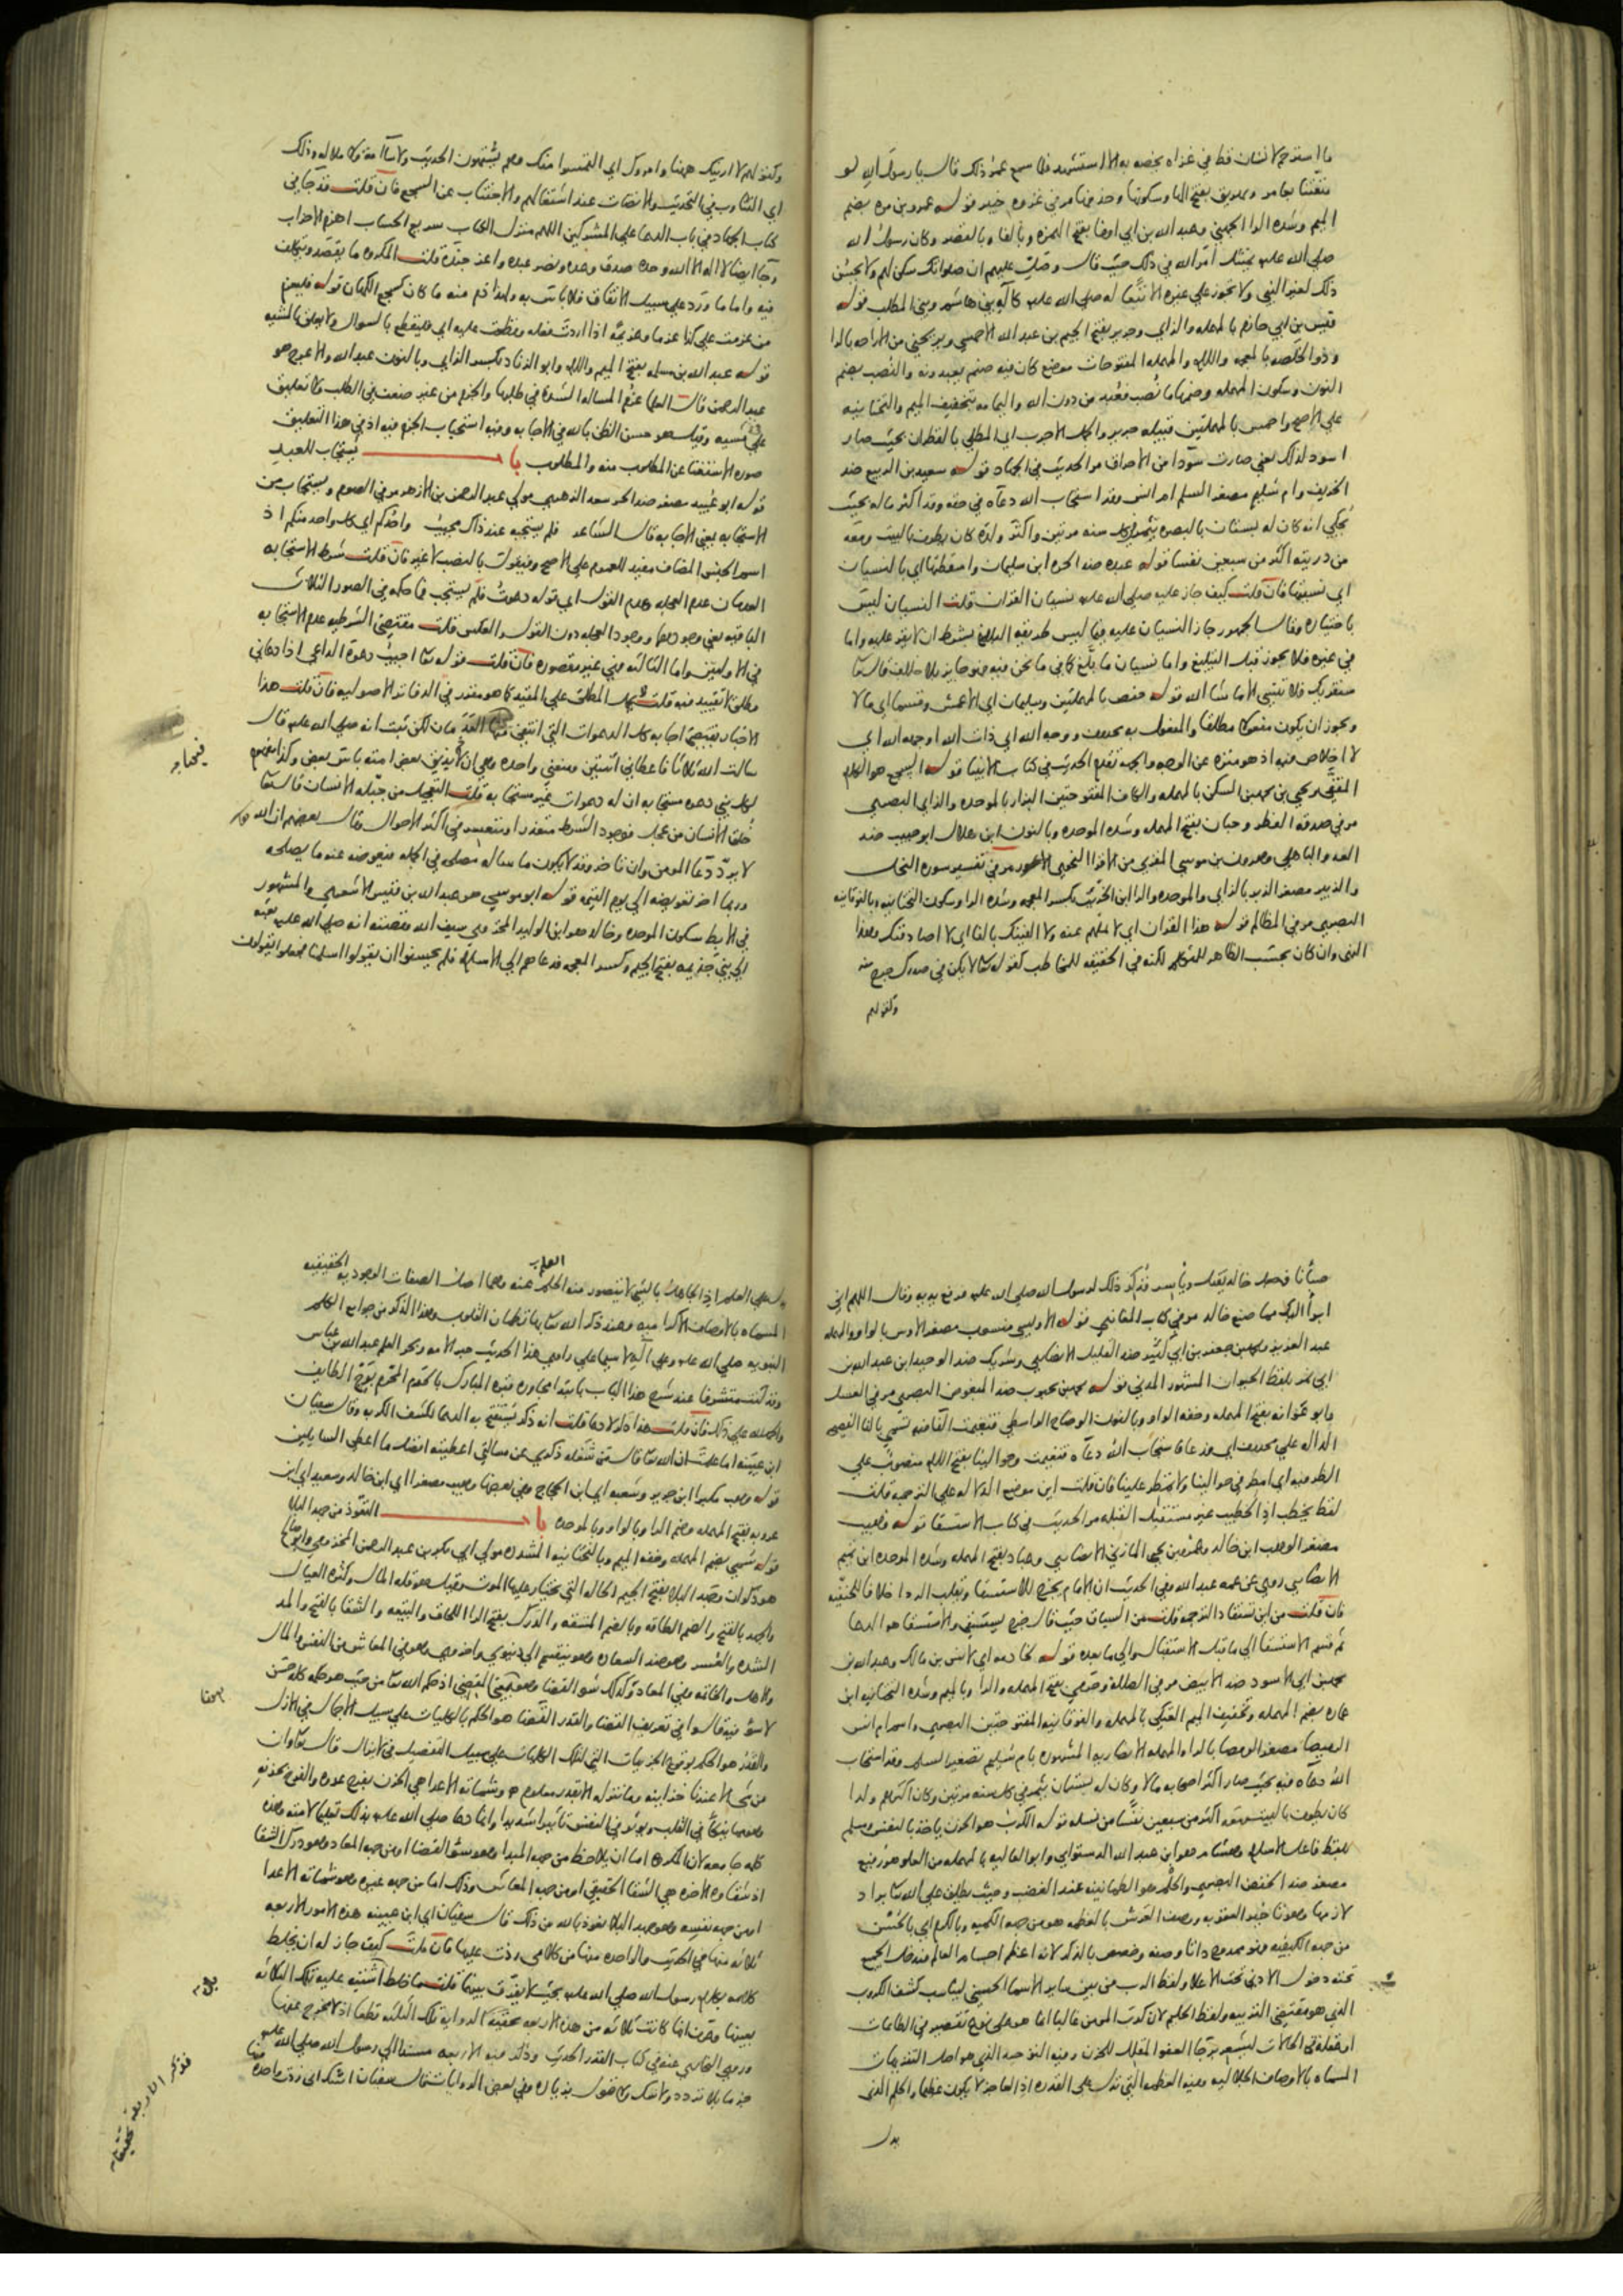 ما استرحم لانسان قط في غزاة يخصه به الا استشهد فلما سمع عمر ذلك قال يا رسول الله لو
متعتنا بعامر ومر وبفتح الها وسكونها وحذفها مر في غزوة خيبر قوله عمرو بن مرة بضم
الميم وشدة الرا الجهني وعبد الله بن ابي اوفى بفتح الهمزة وبالفا وبالقصر وكان رسول الله
صلى الله عليه يمتثل امر الله في ذلك حيث قال وصل عليهم ان صلواتك سكن لهم ولا يحسن
ذلك لغير النبي ولا يجوز على غيره الا تبعا له صلى الله عليه كآله بني هاشم وبني المطلب قوله
قيس بن ابي حازم بالمهملة والزاي وجرير بفتح الجيم بن عبد الله الاحمسي ويريحني من الاراحة بالرا
وذو الخلصة بالمعجمة واللام والمهملة المفتوحات موضع كان فيه صنم يعبدونه والنصب بضم
النون وسكون المهملة وضمها ما نصب فعبد من دون الله واليمامة بتخفيف الميم والتحتانية
على الاصح واحمس بالمهملتين قبيلة جرير والجمل الاجرب اي المطلي بالقطران بحيث صار
اسود لذلك يعني صارت سودا من الاحراق مر الحديث في الجهاد قوله سعيد بن الربيع ضد
الخريف وام سليم مصغر السلم ام انس وقد استجاب الله دعاه في حقه وقد اكثر ماله بحيث
يحكى انه كان له بستان بالبصرة يثمر في كل سنة مرتين واكثر ولده كان يطوف بالبيت ومعه
من ذريته اكثر من سبعين نفسا قوله عبدة ضد الحرة ابن سليمان واسقطتها اي بالنسيان
اي نسيتها فان قلت كيف جاز عليه صلى الله عليه نسيان القران قلت النسيان ليس
باختياره وقال الجمهور جاز النسيان عليه فيما ليس طريقه البلاغ بشرط ان لا يقر عليه واما
في غيره فلا يجوز قبل التبليغ واما نسيان ما بلغ كما في ما نحن فيه فهو جايز بلا خلاف قال تعالى
سنقرئك فلا تنسى الا ما شا الله قوله حفص بالمهملتين وسليمان اي الاعمش وقسما اي مالا
ويجوز ان يكون مفعولا مطلقا والمفعول به محذوف ووجه الله اي ذات الله او جهة الله اي
لا اخلاص فيه اذ هو منزه عن الوجه والجهة تقدم الحديث في كتاب الانبيا قوله السجع هو الكلام
المقفى ويحيى بن محمد بن السكن بالمهملة والكاف المفتوحتين البزار بالموحدة والزاي البصري
مر في صدقة الفطر وحبان بفتح المهملة وشدة الموحدة وبالنون ابن هلال ابو حبيب ضد
العدو الباهلي وهرون بن موسى المقري من الاقرا النحوي الاعور مر في تفسير سورة النحل
والزبير مصغر الزبر بالزاي والموحدة والرا ابن الخريت بكسر المعجمة وشدة الرا وسكون التحتانية وبالفوقانية
البصري مر في المظالم قوله هذا القران اي لا تملهم عنه ولا الفينك بالفا اي لا اصادفنك وهذا
النهي وان كان بحسب الظاهر للمتكلم لكنه في الحقيقة للمخاطب كقوله تعالى لا يكن في صدرك حرج منه
وكقولهم
وكقولهم لا ارينك ههنا وامروك اي التمسوا منك وهم يشتهون الحديث ولا سآمة ولا ملالة وذلك
اي الثناوب في التحديث والانصات عند اشتغالهم والاجتناب عن السجع فان قلت قد جا في
كتاب الجهاد في باب الدعا على المشركين اللهم منزل الكتاب سريع الحساب اهزم الاحزاب
وجا ايضا لا اله الا الله وحده صدق وعده ونصر عبده واعز جنده قلت المكروه ما يقصد ويتكلف
فيه واما ما ورد على سبيل الاتفاق فلا باس به ولهذا ذم منه ما كان كسجع الكهان قوله فليعزم
من عزمت على كذا عزما وعزيمة اذا اردت فعله وقطعت عليه اي فليقطع بالسوال ولا يعلق بالمشية
قوله عبد الله بن مسلمة بفتح الميم واللام وابو الزناد بكسر الزاي وبالنون عبد الله والاعرج هو
عبد الرحمن قال العلما عزم المسالة الشدة في طلبها والجزم من غير ضعف في الطلب ولا تعليق
على مشيه وقيل هو حسن الظن بالله في الاجابة وفيه استحباب الجزم فيه اذ في هذا التعليق
صورة الاستغنا عن المطلوب منه والمطلوب باب يستجاب للعبد
قوله ابو عبيد مصغر ضد الحر سعد الزهري مولى عبد الرحمن بن الازهر مر في الصوم ويستجاب من
الاستجابة بمعنى الاجابة قال الشاعر فلم يستجبه عند ذاك مجيب واحدكم اي كل واحد منكم اذ
اسم الجنس المضاف مفيد للعموم على الاصح وفيقول بالنصب لا غير فان قلت شرط الاستجابة
العدمان عدم العجلة وعدم القول اي قوله دعوت فلم يستجب فما حكمه في الصور الثلاث
الباقية يعني وجودهما ووجود العجلة دون القول والعكس قلت مقتضى الشرطية عدم الاستجابة
في الاوليين واما الثالثة فهي غير متصورة فان قلت قوله تعالى اجيب دعوة الداعي اذا دعاني
مطلق لا تقييد فيه قلت يحمل المطلق على المقيد كما هو مقرر في الدفاتر الاصولية فان قلت هذا
الاخبار يقتضي اجابة كل الدعوات التي انتفى فيها العدمان لكن ثبت انه صلى الله عليه قال
سالت الله ثلاثا فاعطاني اثنتين ومنعني واحدة وهي ان لا يذيق بعض امته باس بعض وكذا مفهوم
لكل نبي دعوة مستجابة ان له دعوات غير مستجابة قلت التعجيل من جبلة الانسان قال تعالى
خلق الانسان من عجل فوجود الشرط متعذر او متعسر في اكثر الاحوال وقال بعضهم ان الله
لا يرد دعا المومن وان تاخر وقد لا يكون ما ساله مصلحة في الجملة فيعوضه عنه ما يصلحه
وربما اخر تعويضه الى يوم القيمة قوله ابو موسى هو عبد الله بن قيس الاشعري والمشهور
في الابط سكون الموحدة وخالد هو ابن الوليد المخزومي سيف الله وقصته انه صلى الله عليه بعثه
الى بني جذيمة بفتح الجيم وكسر المعجمة فدعاهم الى الاسلام فلم يحسنوا ان يقولوا اسلمنا فجعلوا يقولون
صبأنا فجعل خالد يقتل ويأسر فذكر ذلك لرسول الله صلى الله عليه فرفع يديه وقال اللهم اني
ابرأ اليك مما صنع خالد مر في كتاب المغازي قوله الاويسي منسوب مصغر الاوس بالواو والمهملة
عبد العزيز ومحمد بن جعفر بن ابي كثير ضد القليل الانصاري وشريك ضد الوحيد ابن عبد الله بن
ابي نمر بلفظ الحيوان المشهور المدني قوله محمد بن محبوب ضد المبغوض البصري مر في الغسل
وابو عوانة بفتح المهملة وخفة الواو وبالنون الوضاح الواسطي فتغيمت الفا فيه تسمى بالفا الفصيحة
الدالة على محذوف اي فدعا فاستجاب الله دعاه فتغيمت وحوالينا بفتح اللام منصوب على
الظرفية اي امطر في حوالينا ولا تمطر علينا فان قلت اين موضع الدلالة على الترجمة قلت
لفظ يخطب اذ الخطيب غير مستقبل القبلة مر الحديث في كتاب الاستسقا قوله وهيب
مصغر الوهب ابن خالد وعمرو بن يحيى المازني الانصاري وعباد بفتح المهملة وشدة الموحدة ابن تميم
الانصاري روى عن عمه عبد الله وفي الحديث ان الامام يخرج للاستسقا وتقلب الردا خلافا للحنفية
فان قلت من اين تستفاد الترجمة قلت من السياق حيث قال خرج يستسقي والاستسقا هو الدعا
ثم قسم الاستسقا الى ما قبل الاستقبال والى ما بعده قوله لخادمه اي لانس بن مالك وعبد الله بن
محمد بن ابي الاسود ضد الابيض مر في الصلاة وحرمي بفتح المهملة والرا وبالميم وشدة التحتانية ابن
عمارة بضم المهملة وتخفيف الميم العتكي بالمهملة والفوقانية المفتوحتين البصري واسم ام انس
الرميصا مصغر الرمصا بالرا والمهملة الانصارية المشهورة بام سليم تصغير السلم وقد استجاب
الله دعاه فيه بحيث صار اكثر اصحابه مالا وكان له بستان يثمر في كل سنة مرتين وكان اكثرهم ولدا
كان يطوف بالبيت ومعه اكثر من سبعين نفسا من نسله قوله الكرب هو الحزن ياخذ بالنفس ومسلم
بلفظ فاعل الاسلام وهشام هو ابن عبد الله الدستوايي وابو العالية بالمهملة من العلو هو رفيع
مصغر ضد الخفض البصري والحلم هو الطمانينة عند الغضب وحيث يطلق على الله تعالى يراد
لازمها وهو تاخير العقوبة ووصف العرش بالعظمة هو من جهة الكمية وبالكرم اي بالحسن
من جهة الكيفية فهو ممدوح ذاتا وصفة وخصص بالذكر لانه اعظم اجسام العالم فيدخل الجميع
تحته دخول الادنى تحت الاعلا ولفظ الرب من بين ساير الاسما الحسنى ليناسب كشف الكروب
الذي هو مقتضى التربية ولفظ الحليم لان كرب المومن غالبا انما هو على نوع تقصير في الطاعات
او غفلة في الحالات ليشعر برجا العفو المقلل للحزن وفيه التوحيد الذي هو اصل التنزيهات
المسماة بالاوصاف الجلالية وفيه العظمة التي تدل على القدرة اذ العاجز لا يكون عظيما والحلم الذي
يدل
العلم
يدل على العلم اذ الجاهل بالشي لا يتصور منه الحلم عنه وهما اصل الصفات الوجودية الحقيقية
المسماة بالاوصاف الاكرامية وعند ذكر الله تعالى بها تطمان القلوب وهذا الذكر من جوامع الكلم
النبوية صلى الله عليه وعلى اله لا سيما على راوي هذا الحديث حبر الامة وبحر العلم عبد الله بن عباس
وقد كنت متشرفا عند شرح هذا الباب بابتدا مجاورة قبره المبارك بالحرم المحترم بوج الطايف
والحمد لله على ذلك فان قلت هذا ذكر لا دعا قلت انه ذكر يستفتح به الدعا لكشف الكربة وقال سفيان
ابن عيينة اما علمت ان الله تعالى قال من شغله ذكري عن مسالتي اعطيته افضل ما اعطي السايلين
قوله وهب مكبرا ابن جرير وشعبة اي ابن الحجاج وفي بعضها وهيب مصغرا اي ابن خالد وسعيد اي ابن
عروبة بفتح المهملة وضم الرا وبالواو وبالموحدة باب التعوذ من جهد البلا
قوله سمي بضم المهملة وخفة الميم وبالتحتانية المشددة مولى ابي بكر بن عبد الرحمن المخزومي وابو صالح
هو ذكوان وجهد البلا بفتح الجيم الحالة التي يختار عليها الموت وقيل هو قلة المال وكثرة العيال
والجهد بالفتح والضم الطاقة وبالضم المشقة والدرك بفتح الرا اللحاق والتبعة والشقا بالفتح والمد
الشدة والعسر وهو ضد السعادة وهو ينقسم الى دنيوي واخروي وهو في المعاش من النفس والمال
والاهل والخاتمة وفي المعاد وكذلك سو القضا وهو بمعنى المقضي اذ حكم الله تعالى من حيث هو حكمه كله حسن
لا سوء فيه قالوا في تعريف القضا والقدر القضا هو الحكم بالكليات على سبيل الاجمال في الازل
والقدر هو الحكم بوقوع الجزييات التي لتلك الكليات على سبيل التفصيل في الانزال قال تعالى وان
من شي الا عندنا خزاينه وما ننزله الا بقدر معلوم وشماتة الاعدا هي الحزن بفرح عدوه والفرح بحزنه
وهو مما ينكأ في القلب ويوثر في النفس تاثيرا شديدا وانما دعا صلى الله عليه بذلك تعليما لامته وهذه
كلمة جامعة لان المكروه اما ان يلاحظ من جهة المبدا وهو سو القضا او من جهة المعاد وهو درك الشقا
اذ شقاوة الاخرة هي الشقا الحقيقي او من جهة المعاش وذلك اما من جهة غيره وهو شماتة الاعدا
او من جهة نفسه وهو جهد البلا نعوذ بالله من ذلك قال سفيان اي ابن عيينة هذه الامور الاربعة
ثلاثة منها في الحديث والواحدة منها من كلامي زدت عليها فان قلت كيف جاز له ان يخلط
كلامه بكلام رسول الله صلى الله عليه بحيث لا يفرق بينهما قلت ما خلط اشتبه عليه تلك الثلاثة
بعينها وعرف انها كانت ثلاثة من هذه الاربعة تحقيقا لرواية تلك الثلثة قطعا اذ لا تخرج عنها
وروى البخاري عنه في كتاب القدر الحديث وذكر فيه الاربعة مسندا الى رسول الله صلى الله عليه
جزما بلا تردد ولا شك ولا قول بزيادة وفي بعض الروايات قال سفيان اشك اني زدت واحدة منها